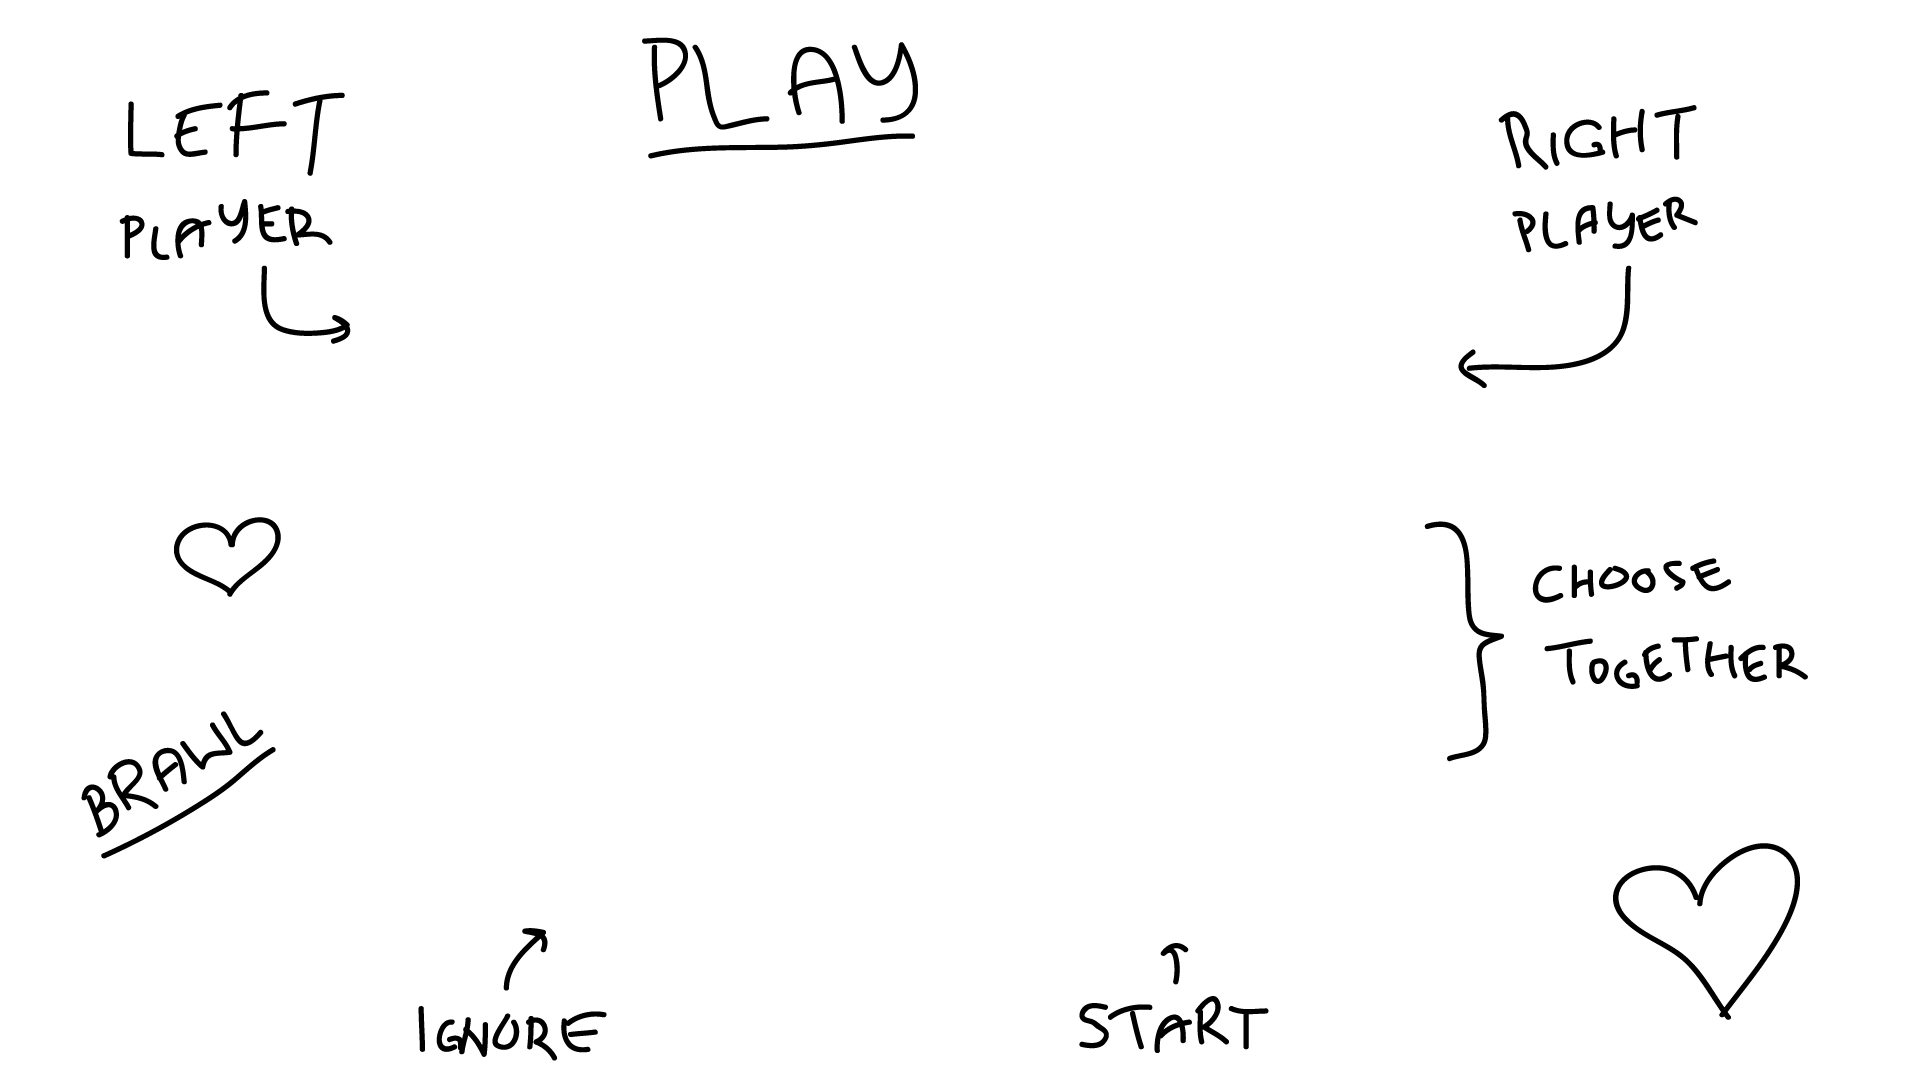 PLAY
LEFT
PLAYER
RIGHT
PLAYER
CHOOSE
TOGETHER
BRAWL
IGNORE
START